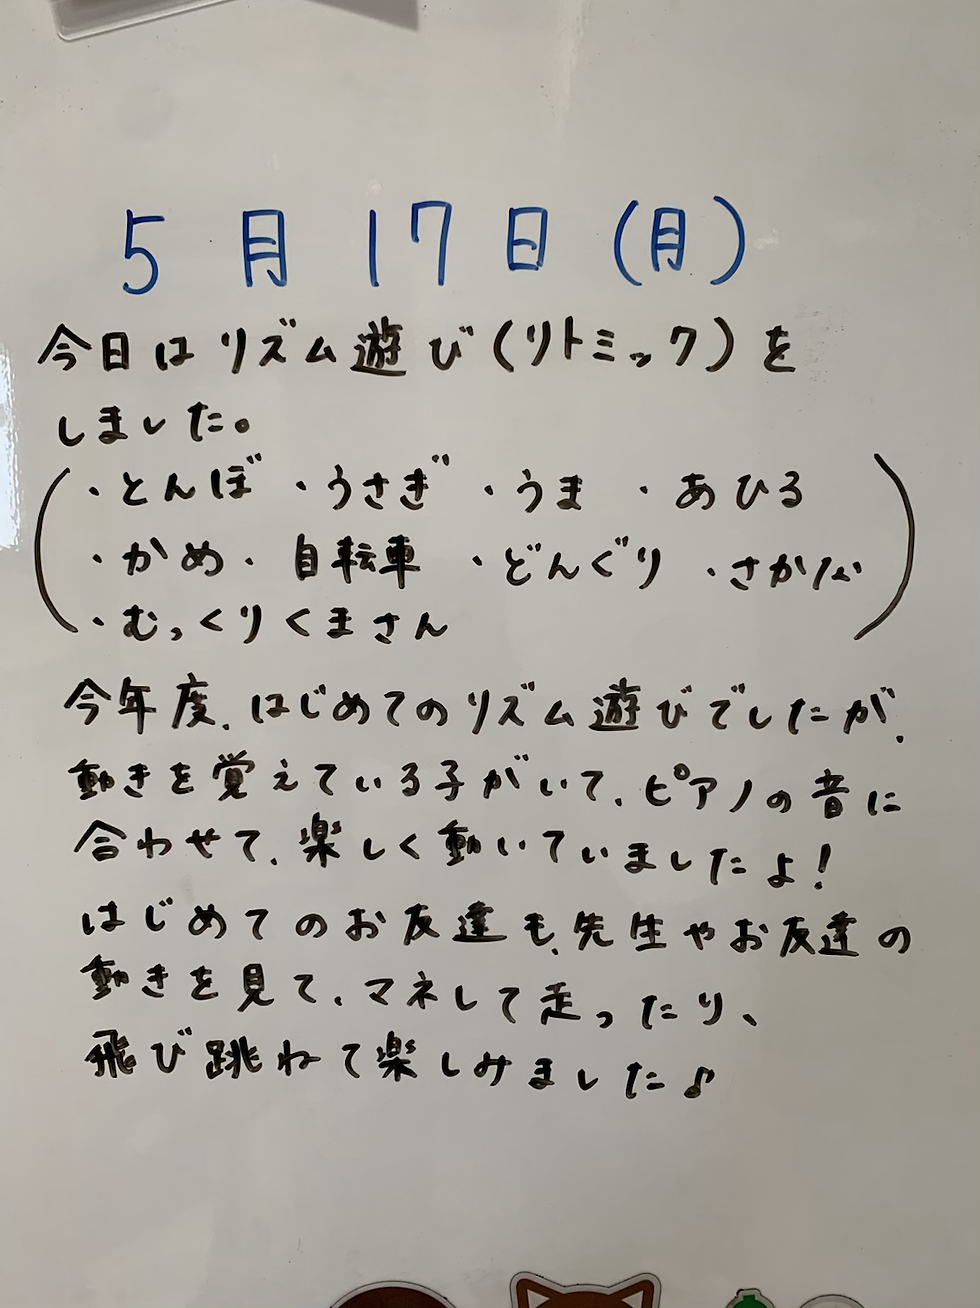 5月17日(月)
今日はリズム遊び(リトミック)を
しました。
・とんぼ ・うさぎ ・うま ・あひる
・かめ ・自転車 ・どんぐり ・さかな
・むっくりくまさん
今年度、はじめてのリズム遊びでしたが、
動きを覚えている子がいて、ピアノの音に
合わせて、楽しく動いていましたよ!
はじめてのお友達も、先生やお友達の
動きを見て、マネして走ったり、
飛び跳ねて楽しみました♪